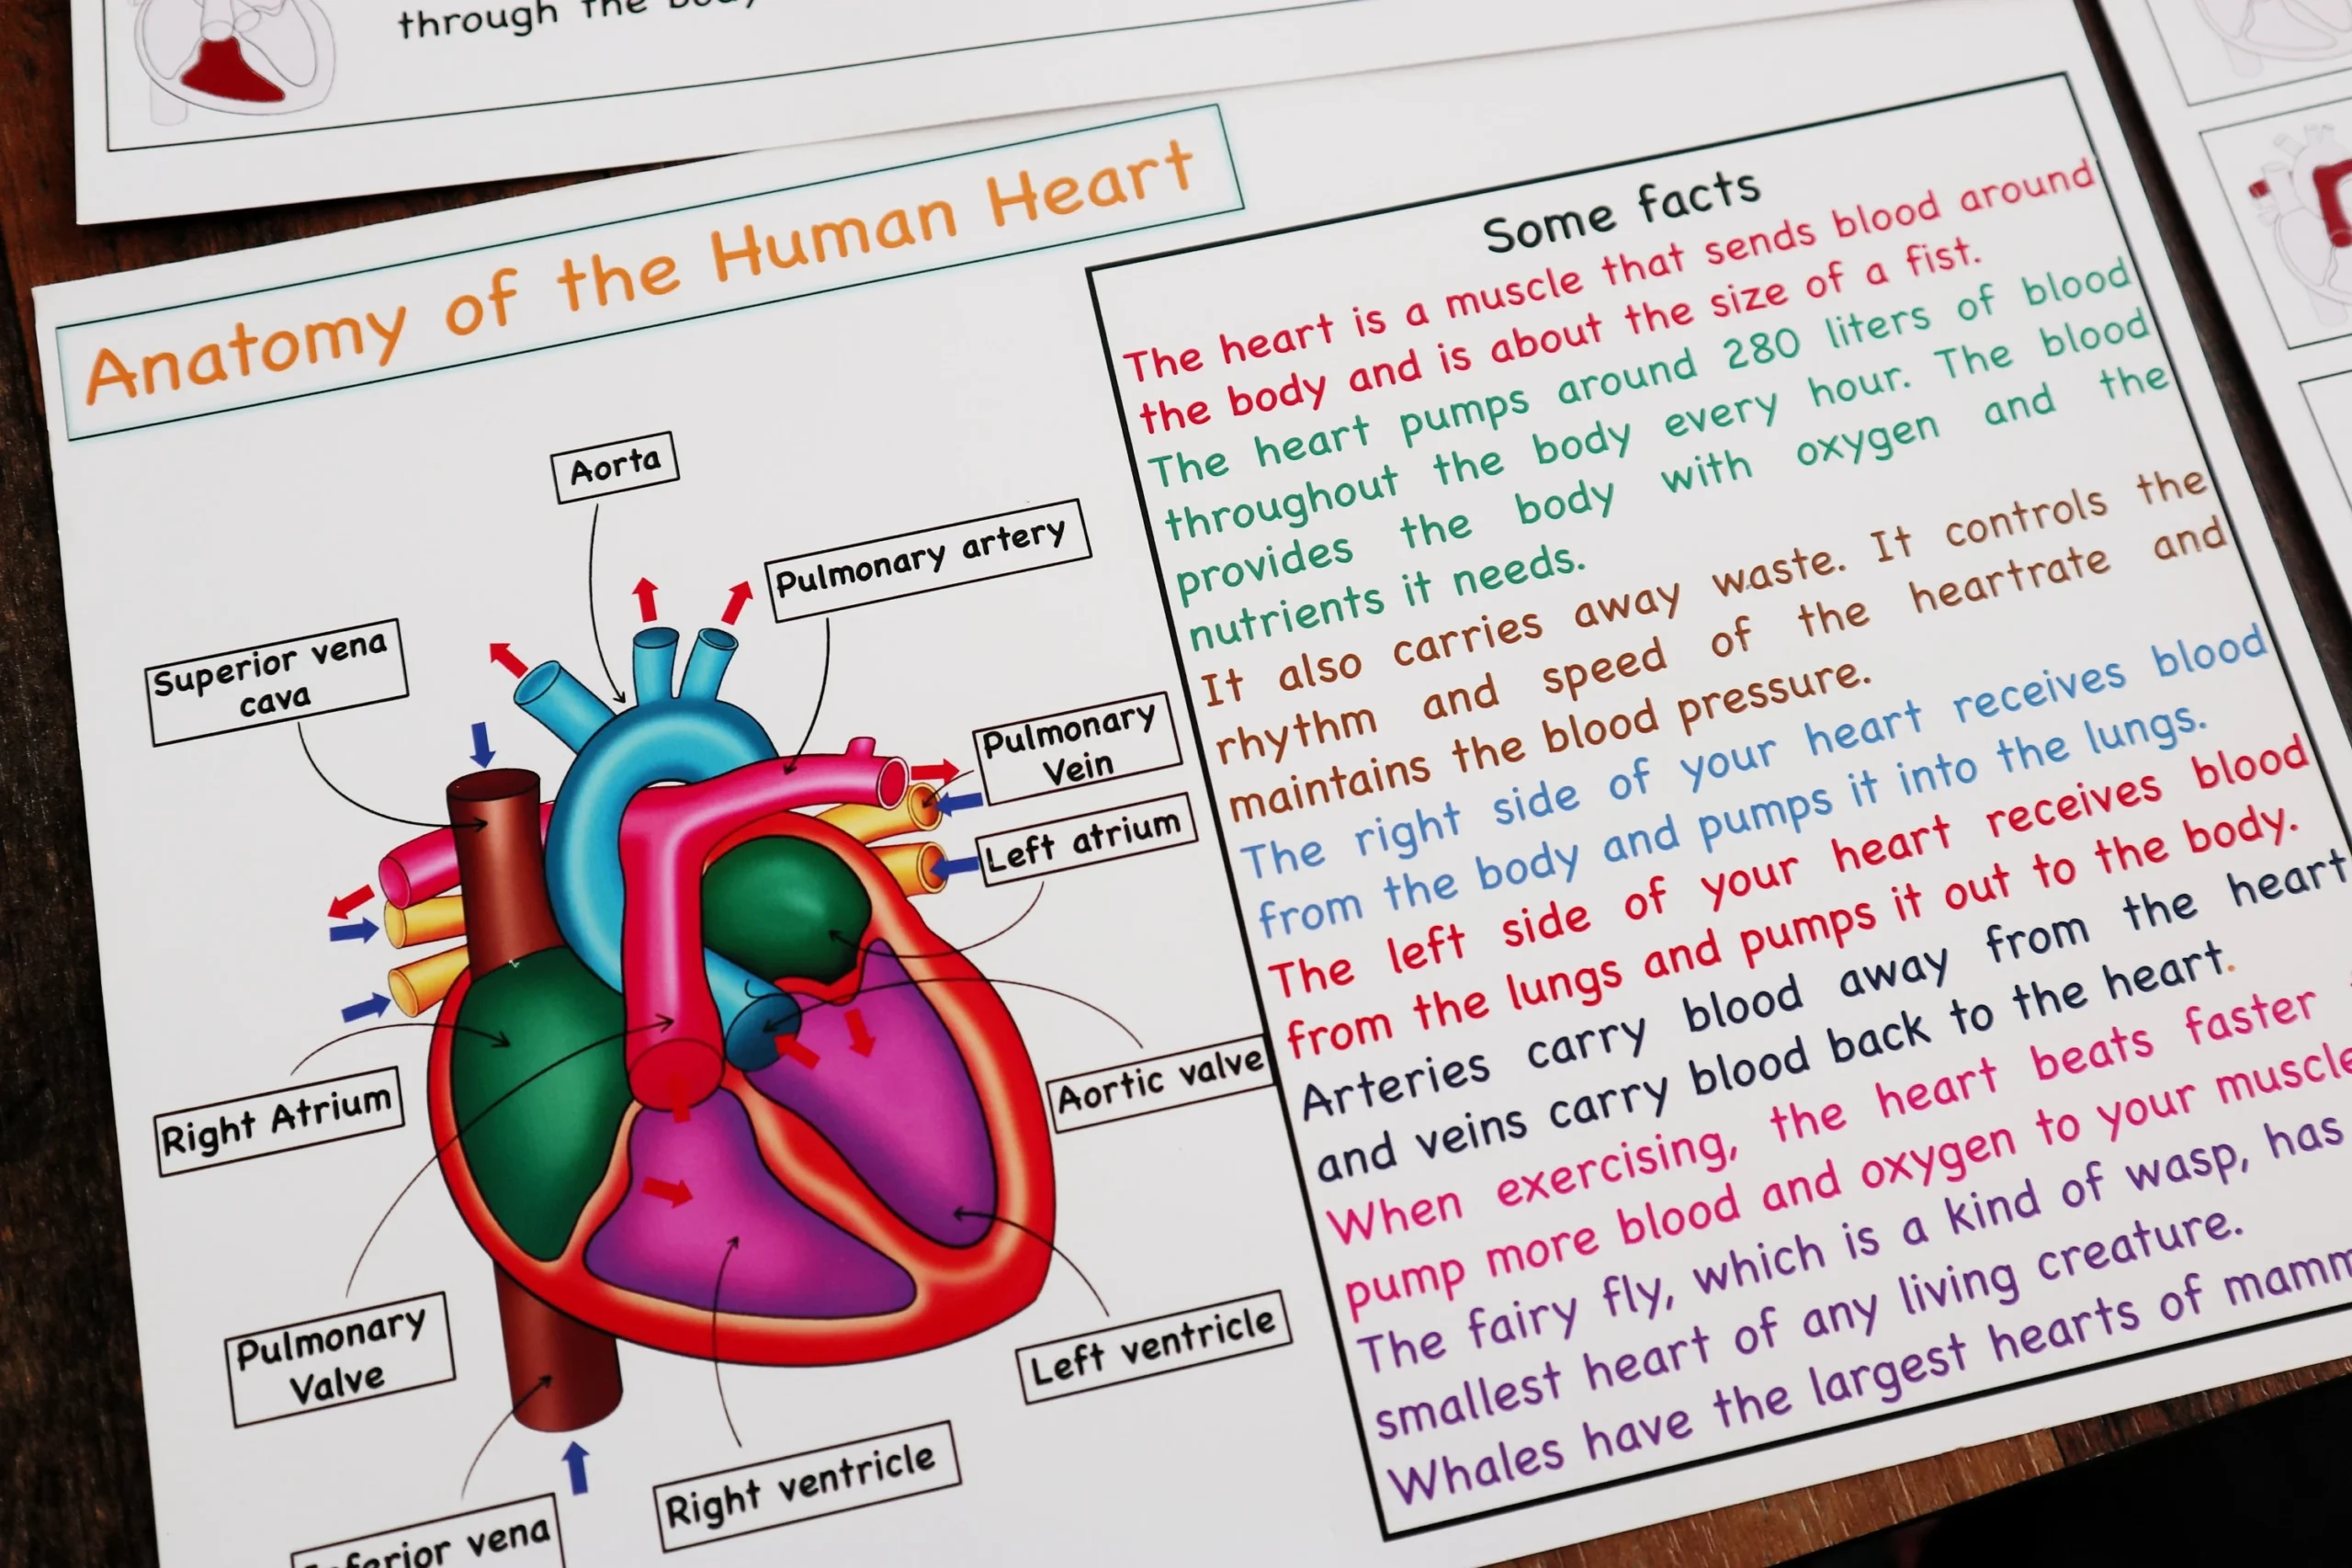 through the body
Anatomy of the Human Heart
Aorta
Pulmonary artery
Superior vena
cava
Pulmonary
Vein
Left atrium
Right Atrium
Aortic valve
Pulmonary
Valve
Left ventricle
Right ventricle
vena
Some facts
The heart is a muscle that sends blood around
the body and is about the size of a fist.
The heart pumps around 280 liters of blood
throughout the body every hour. The blood
provides the body with oxygen and the
nutrients it needs.
It also carries away waste. It controls the
rhythm and speed of the heartrate and
maintains the blood pressure.
The right side of your heart receives blood
from the body and pumps it into the lungs.
The left side of your heart receives blood
from the lungs and pumps it out to the body.
Arteries carry blood away from the heart
and veins carry blood back to the heart.
When exercising, the heart beats faster
pump more blood and oxygen to your
The fairy fly, which is a kind of wasp, has
smallest heart of any living creature.
Whales have the largest hearts of